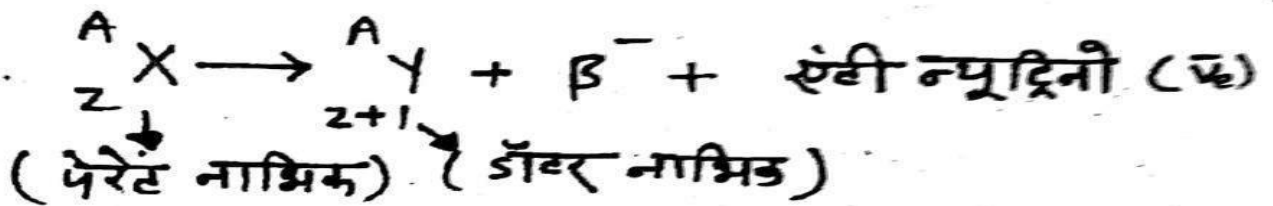 . ᴬ_Z X ⟶ ᴬ_Z+1 Y + β⁻ + एंटी न्यूट्रिनो (ν̄e)
(पेरेंट नाभिक) (डॉटर नाभिक)